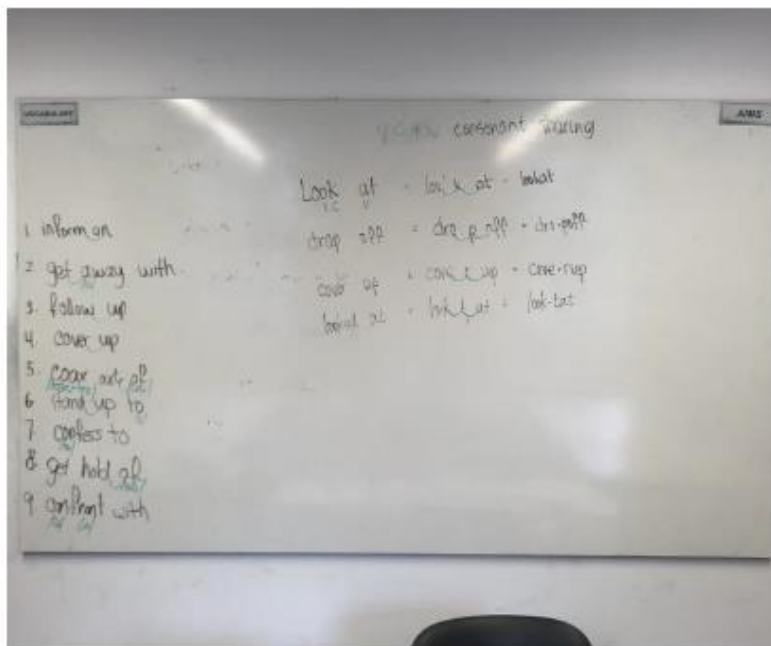 VOCABULARY
AIMS
consonant
Look at = look at = lookat
V C V
drop off = dro p off = dro-poff
cover up = cove r up = cove-rup
looked at = look t at = look-tat
1. inform on
2. get away with
3. follow up
4. cover up
5. coax out of
6. stand up to
7. confess to
8. get hold of
9. confront with